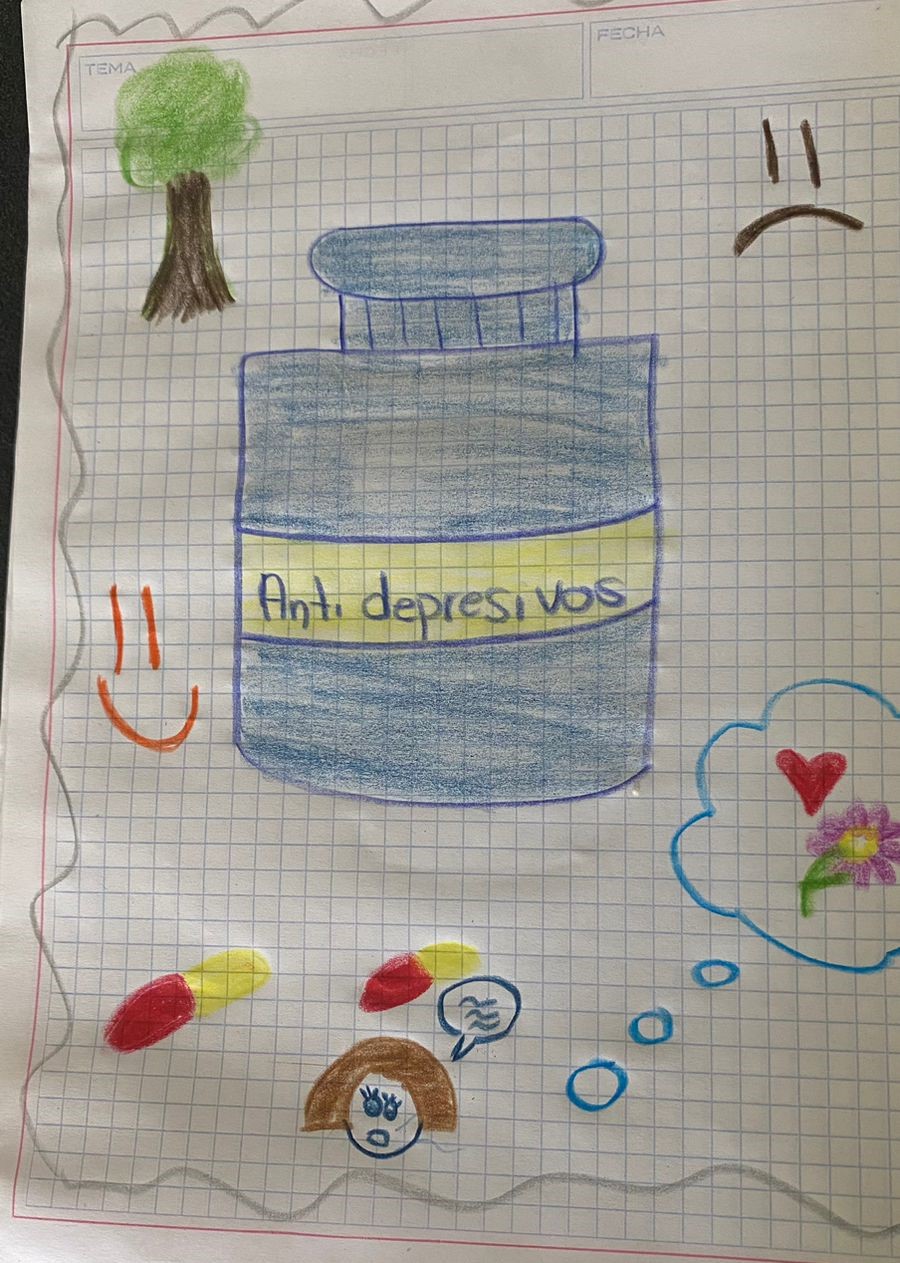 TEMA
FECHA
Anti depresivos